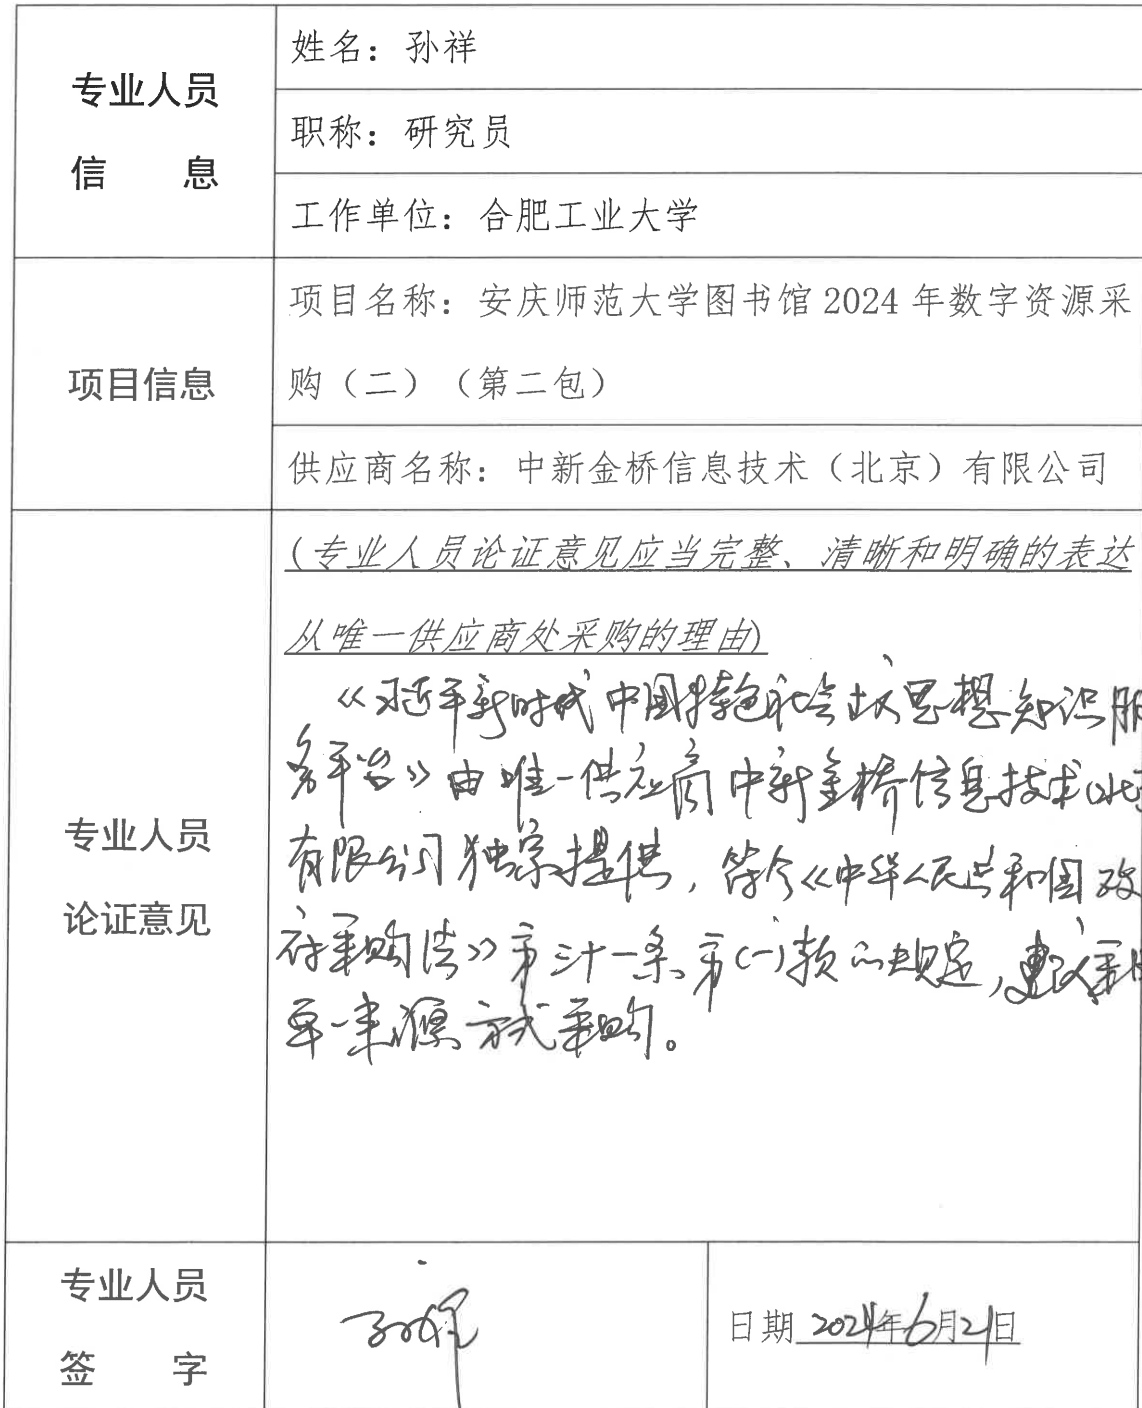 专业人员
信 息
姓名：孙祥
职称：研究员
工作单位：合肥工业大学
项目信息
项目名称：安庆师范大学图书馆 2024 年数字资源采
购（二）（第二包）
供应商名称：中新金桥信息技术（北京）有限公司
专业人员
论证意见
(专业人员论证意见应当完整、清晰和明确的表达
从唯一供应商处采购的理由)
《习近平新时代中国特色社会主义思想知识服
务平台》由唯一供应商中新金桥信息技术（北京
有限公司独家提供，符合《中华人民共和国政
府采购法》第三十一条第(一)款的规定，建议采用
单一来源方式采购。
专业人员
签 字
孙祥
日期 2024年6月21日